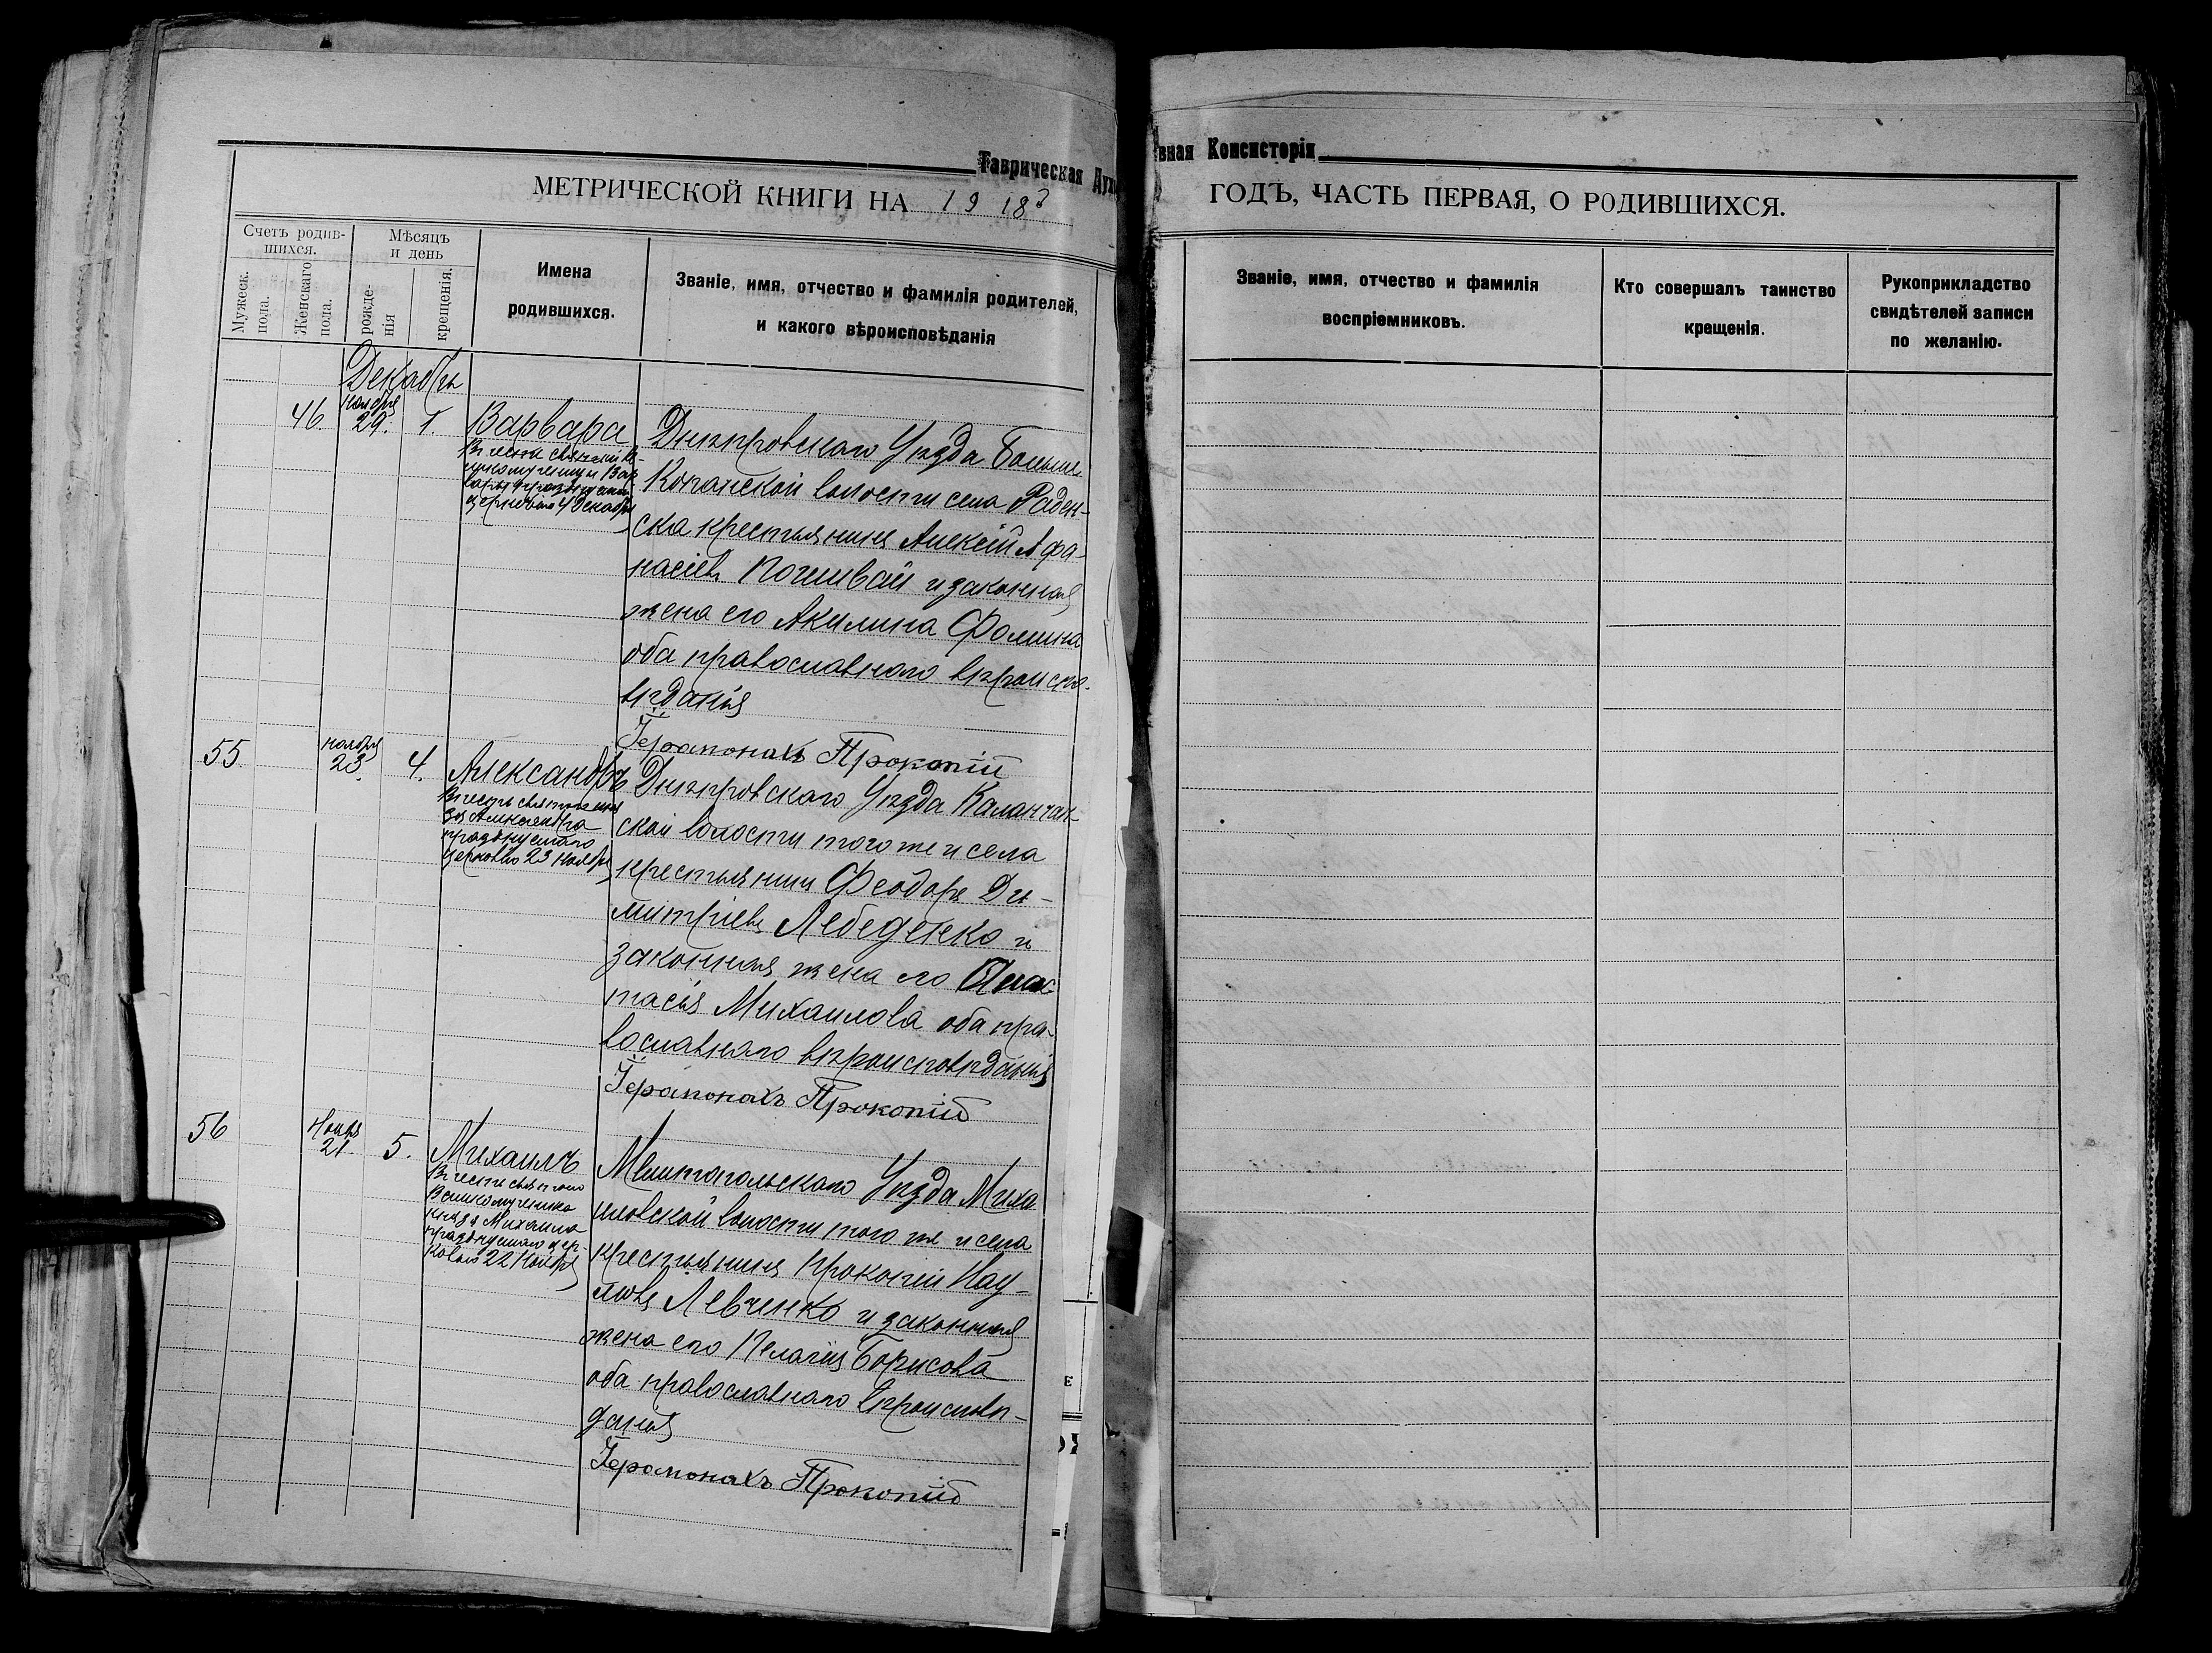 Таврическая Дух
вная Консисторія
МЕТРИЧЕСКОЙ КНИГИ НА 1918
ГОДЪ, ЧАСТЬ ПЕРВАЯ, О РОДИВШИХСЯ.
Счетъ родив-
шихся.
Мужеск.
пола.
Женскаго
пола.
Мѣсяцъ
и день
рожде-
нія
крещенія.
Имена
родившихся.
Званіе, имя, отчество и фамилія родителей,
и какого вѣроисповѣданія
Званіе, имя, отчество и фамилія
воспріемниковъ.
Кто совершалъ таинство
крещенія.
Рукоприкладство
свидѣтелей записи
по желанію.
Декабрь
46. Ноября 29. 1. Варвара
Въ честь святыя Ве-
ликомученицы Вар-
вары празднуемой
церковью 4 Декабря
Днѣпровскаго Уѣзда Больше
Копанской волости села Раден-
ска крестьянинъ Алексій Афа-
насіевъ Почивай и законная
жена его Акилина Фомина
оба православнаго вѣроиспо-
вѣданія
Іеромонахъ Прокопій
55. ноября 23. 4. Александръ
Въ честь святого кня
зя Александра
празднуемаго
церковью 23 Ноября
Днѣпровскаго Уѣзда Каланчак-
ской волости того же и села
крестьянинъ Феодоръ Ди-
митріевъ Лебеденко и
законная жена его Анас-
тасія Михаилова оба пра-
вославнаго вѣроисповѣданія
Іеромонахъ Прокопій
56 Ноября 21. 5. Михаилъ
Въ честь святого
Великомученика
князя Михаила
празднуемаго цер-
ковью 22 Ноября
Мелитопольскаго Уѣзда Миха
иловской волости того же и села
крестьянинъ Прокопій Пав-
ловъ Левченко и законная
жена его Пелагія Борисова
оба православнаго вѣроисповѣ-
данія
Іеромонахъ Прокопій